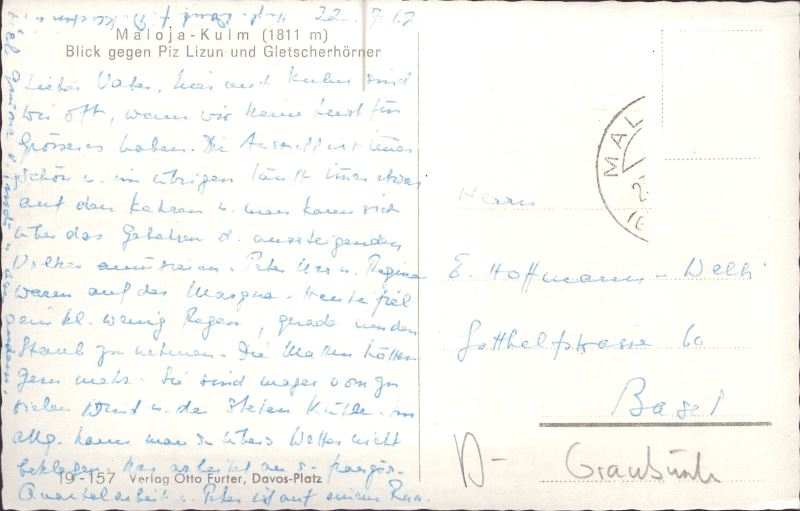 22. 7. 68
Maloja-Kulm (1811 m)
Blick gegen Piz Lizun und Gletscherhörner
Lieber Vater, hier auf Kulm sind
wir oft, wenn wir keine Lust für
Grösseres haben. Die Aussicht ist immer
schön u. im übrigen läuft immer etwas
auf den Kehren u. man kann sich
über das Gebahren d. aussteigenden
Volkes amüsieren. Peter, u. Regina
waren auf der Margna. Heute fiel
ein kl. wenig Regen, gerade um den
Staub zu nehmen. Die Matten hätten
gern mehr. Sie sind mager von zu
vielen Wind u. der steten Kühle. Im
allg. kann man s. übers Wetter nicht
beklagen. arbeitet an s. französ.
Quartalarbeit u. Peter ist auf einem
19-157 Verlag Otto Furter, Davos-Platz
MAL
Herrn
E. Hoffmann-
Gotthelfstrasse 60
Basel